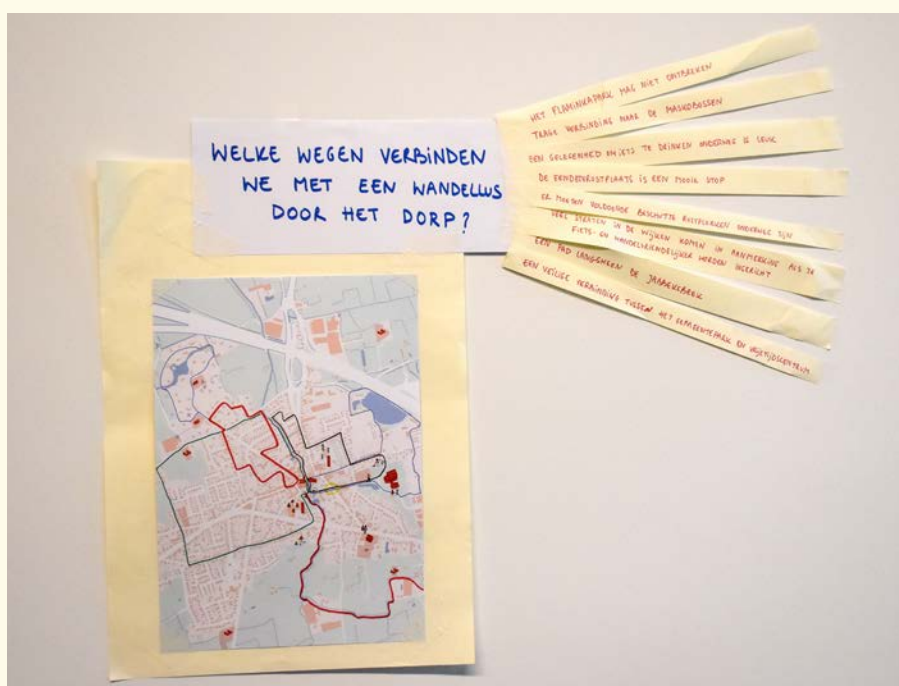 WELKE WEGEN VERBINDEN
WE MET EEN WANDELLUS
DOOR HET DORP?
HET FLAMINKAPARK MAG NIET ONTBREKEN
TRAGE VERBINDING NAAR DE MASKOBOSSEN
EEN GELEGENHEID OM IETS TE DRINKEN ONDERWEG IS LEUK
DE EENDENRUSTPLAATS IS EEN MOOIE STOP
ER MOETEN VOLDOENDE BESCHUTTE RUSTPLEKKEN ONDERWEG ZIJN
VEEL STRATEN IN DE WIJKEN KOMEN IN AANMERKING ALS ZE
FIETS- EN WANDELVRIENDELIJKER WORDEN INGERICHT
EEN PAD LANGSHEEN DE JABBEKEBEEK
EEN VEILIGE VERBINDING TUSSEN HET GEMEENTEPARK EN VRIJETIJDSCENTRUM